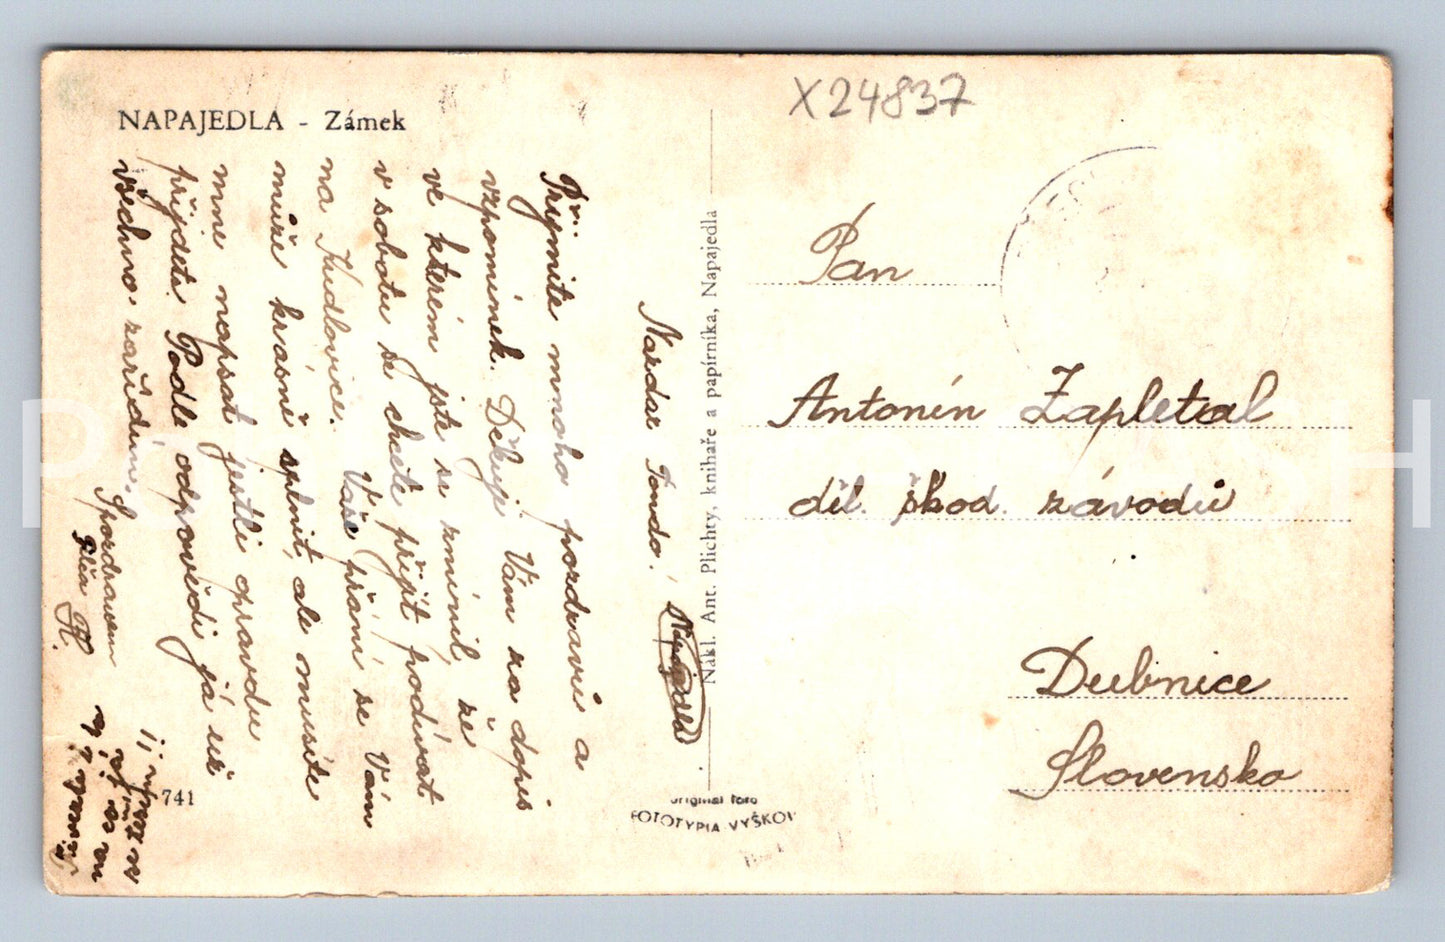 X24837
NAPAJEDLA - Zámek
Nazdar Tondo!
Přijmite mnoho pozdravů a
vzpomínek. Děkuji Vám za dopis
ve kterém jste se zmínil že
v sobotu se chcete přijít podívat
na Kudlovice. Vaše přání se Vám
může krásně splnit, ale musíte
mne napsat jestli opravdu
přijdete. Podle odpovědi já už
všechno zařídím.
S pozdravem
H.
741
Nákl. Ant. Plichty, knihaře a papírníka, Napajedla
Napajedla
original foto
FOTOTYPIA VYŠKOV
Pan
Antonín Zapletal
díl. škod. závodů
Dubnice
Slovensko